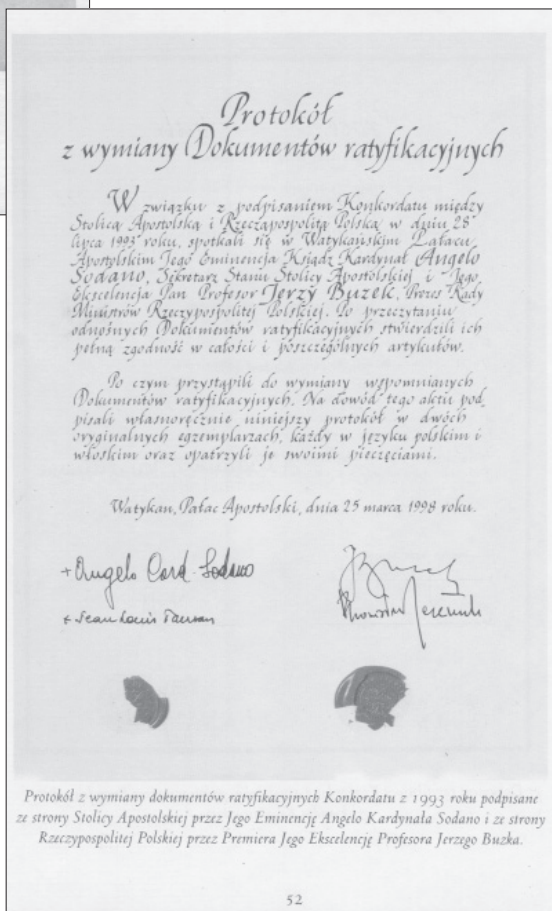 Protokół
z wymiany Dokumentów ratyfikacyjnych
W związku z podpisaniem Konkordatu między
Stolicą Apostolską i Rzecząpospolitą Polską w dniu 28
lipca 1993 roku, spotkali się w Watykańskim Pałacu
Apostolskim Jego Eminencja Ksiądz Kardynał Angelo
Sodano, Sekretarz Stanu Stolicy Apostolskiej i Jego
Ekscelencja Pan Profesor Jerzy Buzek, Prezes Rady
Ministrów Rzeczypospolitej Polskiej. Po przeczytaniu
odnośnych Dokumentów ratyfikacyjnych stwierdzili ich
pełną zgodność w całości i poszczególnych artykułów.
Po czym przystąpili do wymiany wspomnianych
Dokumentów ratyfikacyjnych. Na dowód tego aktu pod
pisali własnoręcznie niniejszy protokół w dwóch
oryginalnych egzemplarzach, każdy w języku polskim i
włoskim oraz opatrzyli je swoimi pieczęciami.
Watykan, Pałac Apostolski, dnia 25 marca 1998 roku.
+ Angelo Card. Sodano
+ Jean Louis Tauran
Protokół z wymiany dokumentów ratyfikacyjnych Konkordatu z 1993 roku podpisane
ze strony Stolicy Apostolskiej przez Jego Eminencję Angelo Kardynała Sodano i ze strony
Rzeczypospolitej Polskiej przez Premiera Jego Ekscelencję Profesora Jerzego Buzka.
52